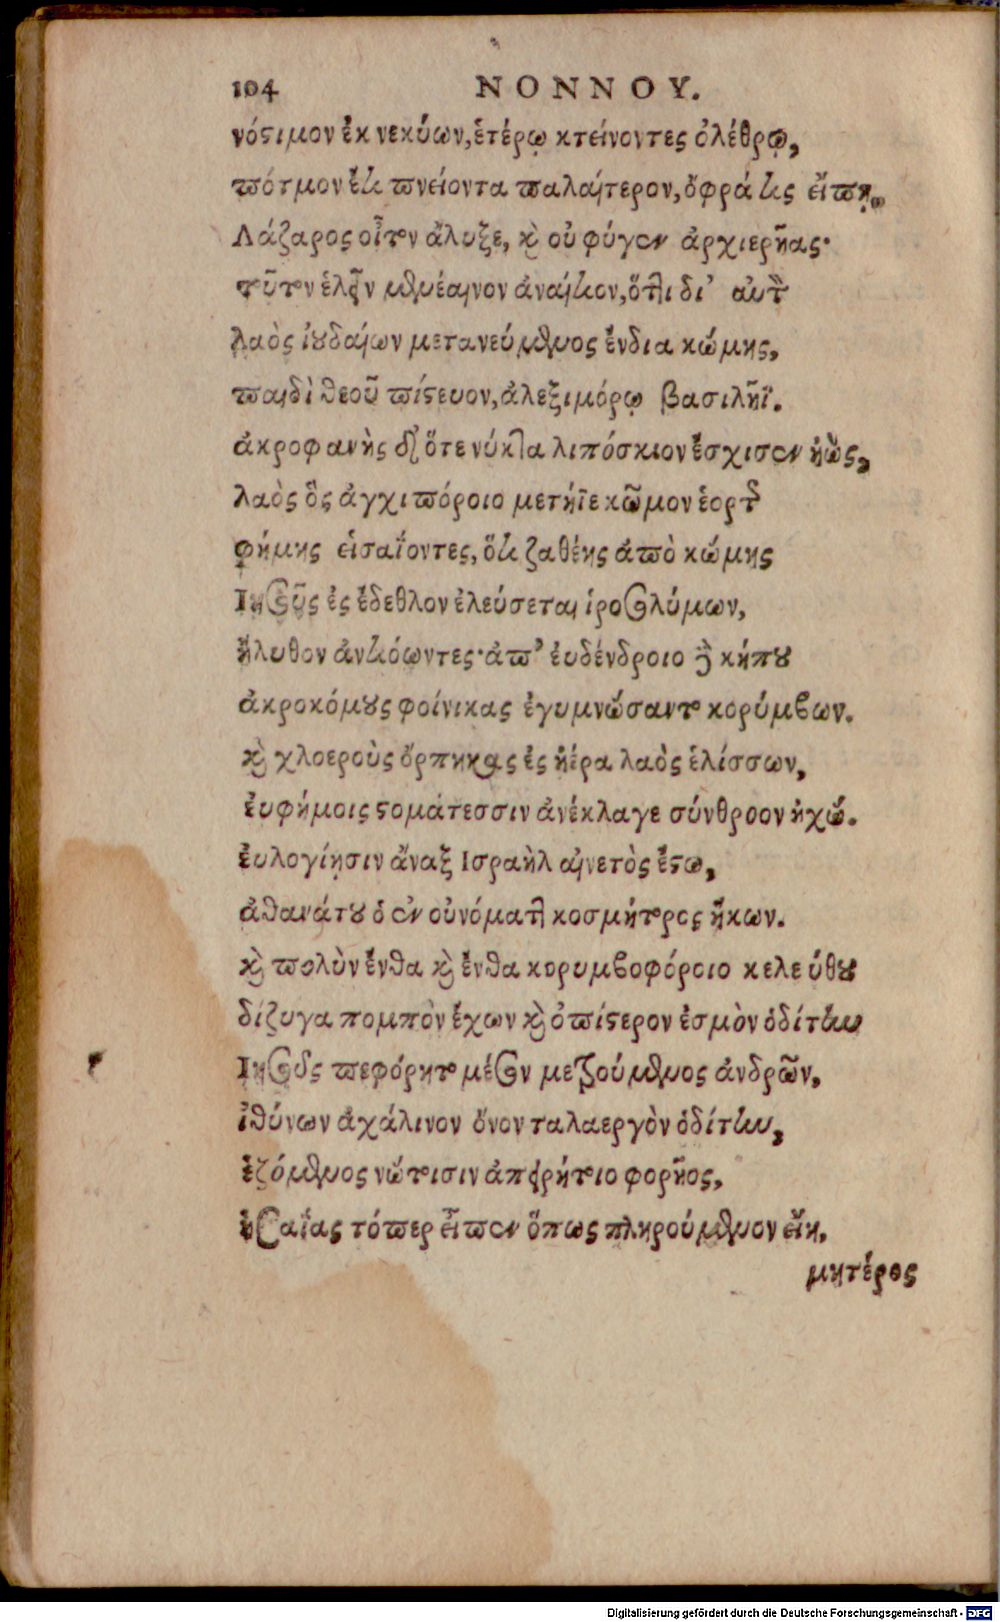 104 ΝΟΝΝΟΥ.
νόστιμον ἐκ νεκύων, ἑτέρῳ κτείνοντες ὀλέθρῳ,
πότμον ἔτι πνείοντα παλαίτερον, ὄφρά τις εἴπῃ,
Λάζαρος οἶτον ἄλυξε, καὶ οὐ φύγεν ἀρχιερῆας·
τοῦτον ἑλεῖν μενέαινον ἀναίτιον, ὅττι δι' αὐτὸν
λαὸς ἰουδαίων μετανεύμενος ἔνδια κώμης,
παιδὶ θεοῦ πίστευον, ἀλεξιμόρῳ βασιλῆϊ.
ἀκροφανὴς δ' ὅτε νύκτα λιπόσκιον ἔσχισεν ἠὼς,
λαὸς ὃς ἀγχιπόροιο μετήϊε κῶμον ἑορτῆς
φήμης εἰσαΐοντες, ὅτι ζαθέης ἀπὸ κώμης
Ιησοῦς ἐς ἔδεθλον ἐλεύσεται ἱροσολύμων,
ἤλυθον ἀντιόωντες· ἀπ' ἐυδένδροιο δὲ κήπου
ἀκροκόμους φοίνικας ἐγυμνώσαντο κορύμβων.
καὶ χλοεροὺς ὄρπηκας ἐς ἠέρα λαὸς ἑλίσσων,
ἐυφήμοις στομάτεσσιν ἀνέκλαγε σύνθροον ἠχώ.
ἐυλογίῃσιν ἄναξ Ισραὴλ αἰνετὸς ἔστω,
ἀθανάτου ὁ ἐν οὐνόματι κοσμήτορος ἥκων.
καὶ πολὺν ἔνθα καὶ ἔνθα κορυμβοφόροιο κελεύθου
δίζυγα πομπὸν ἔχων καὶ ὀπίστερον ἑσμὸν ὁδίτην
Ιησοῦς πεφόρητο μέσον μεζούμενος ἀνδρῶν,
ἰθύνων ἀχάλινον ὄνον ταλαεργὸν ὁδίτην,
ἑζόμενος νώτοισιν ἀπειρήτοιο φορῆος,
ἡσαΐας τόπερ εἶπεν ὅπως πληρούμενον εἴη,
μητέρος
Digitalisierung gefördert durch die Deutsche Forschungsgemeinschaft - DFG